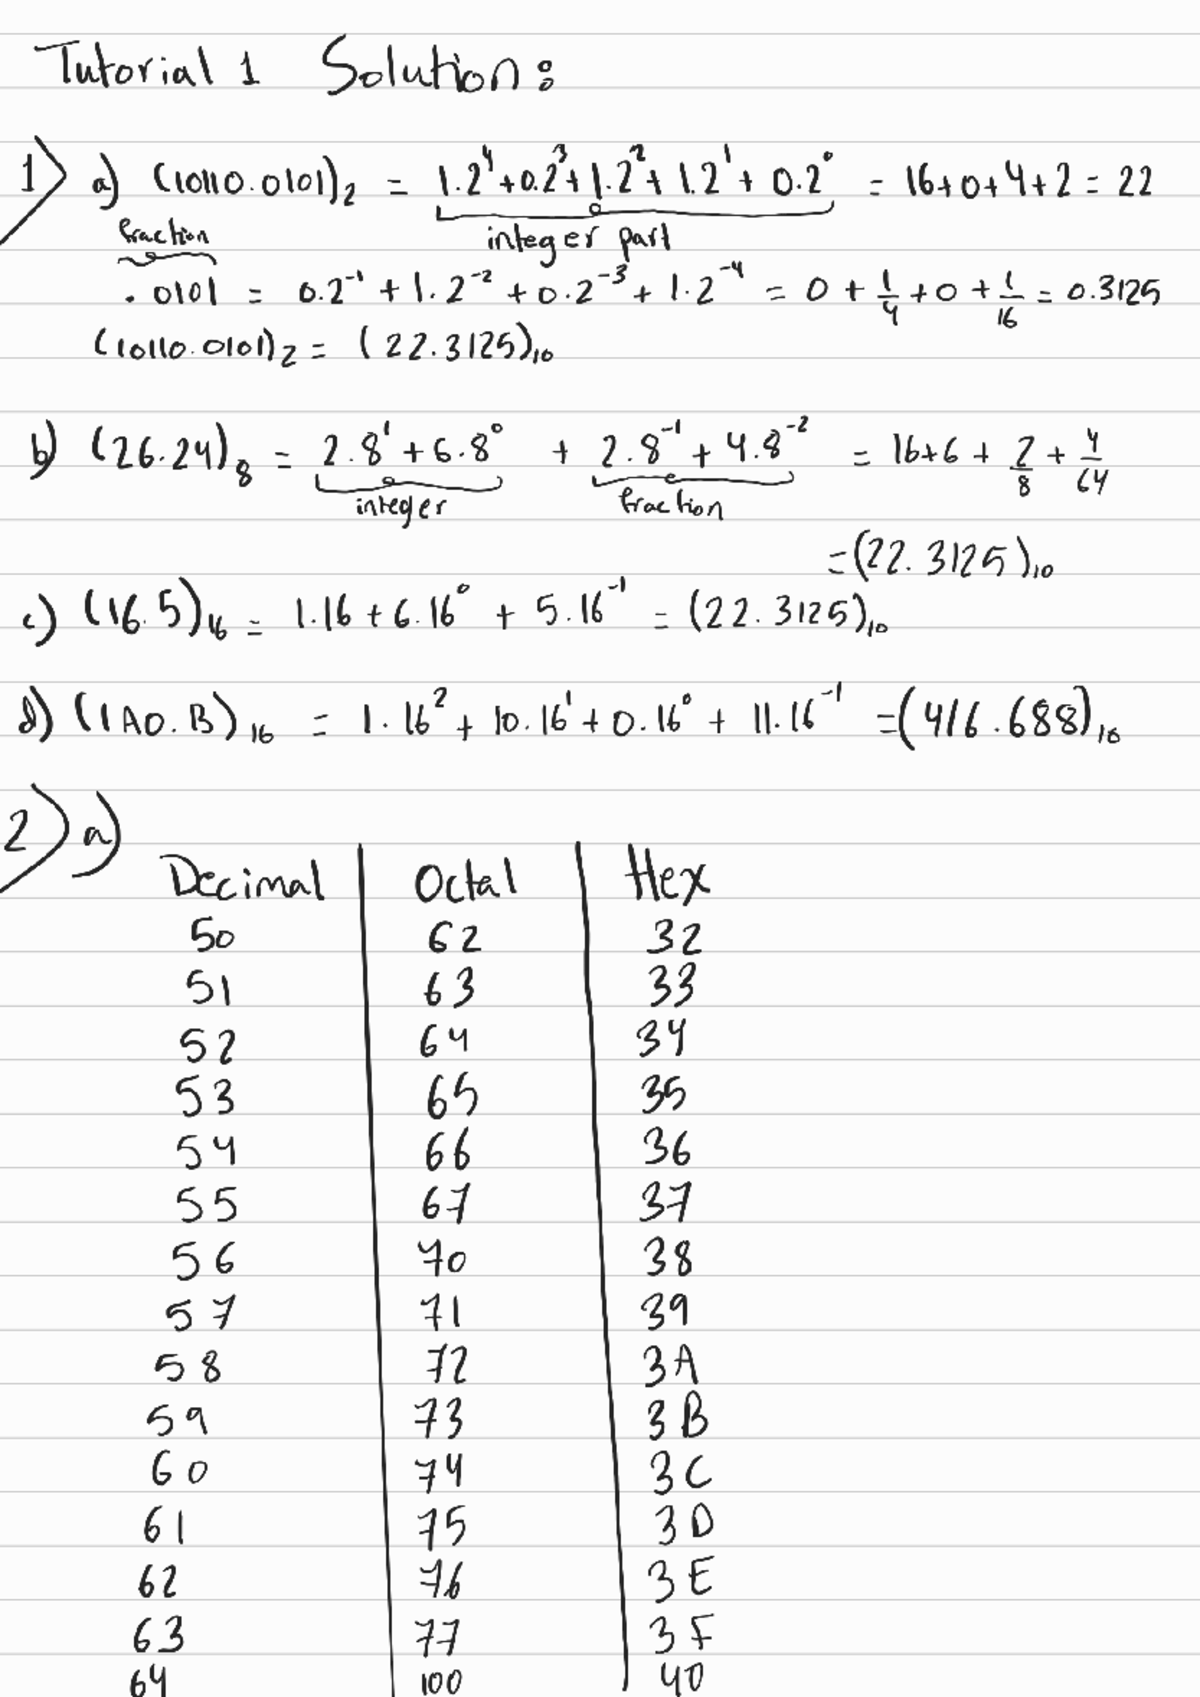 Tutorial 1 Solution:
1) a) (10110.0101)₂ = 1.2⁴+0.2³+1.2²+1.2¹+0.2⁰ = 16+0+4+2 = 22
fraction integer part
.0101 = 0.2⁻¹ + 1.2⁻² + 0.2⁻³ + 1.2⁻⁴ = 0 + 1/4 + 0 + 1/16 = 0.3125
(10110.0101)₂ = (22.3125)₁₀
b) (26.24)₈ = 2.8¹ + 6.8⁰ + 2.8⁻¹ + 4.8⁻² = 16+6 + 2/8 + 4/64
integer fraction
=(22.3125)₁₀
c) (16.5)₁₆ = 1.16 + 6.16⁰ + 5.16⁻¹ = (22.3125)₁₀
d) (1A0.B)₁₆ = 1.16² + 10.16¹ + 0.16⁰ + 11.16⁻¹ =(416.688)₁₀
2) a)
Decimal Octal Hex
50 62 32
51 63 33
52 64 34
53 65 35
54 66 36
55 67 37
56 70 38
57 71 39
58 72 3A
59 73 3B
60 74 3C
61 75 3D
62 76 3E
63 77 3F
64 100 40